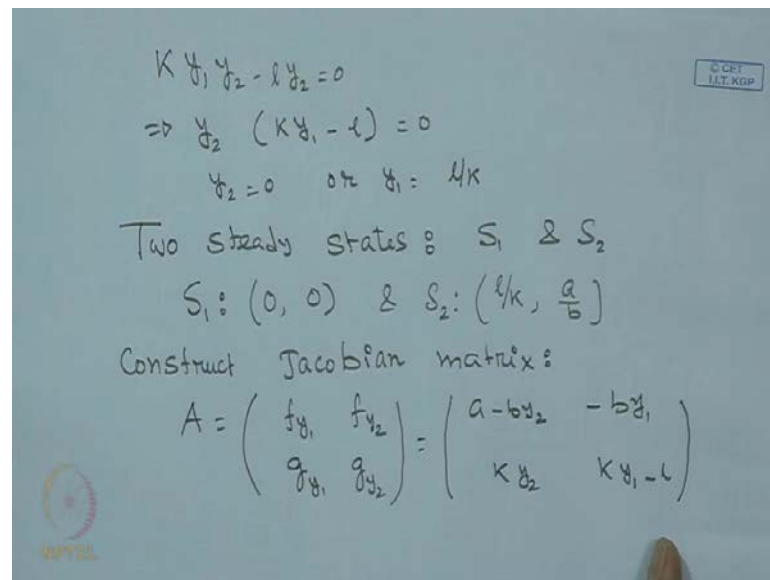 K y₁ y₂ - l y₂ = 0
© CET
I.I.T. KGP
⇒ y₂ (K y₁ - l) = 0
y₂ = 0 or y₁ = l/K
Two steady states : S₁ & S₂
S₁ : (0, 0) & S₂ : (l/K, a/b)
Construct Jacobian matrix :
A = ( f_y₁ f_y₂ ; g_y₁ g_y₂ ) = ( a - b y₂ - b y₁ ; K y₂ K y₁ - l )
NPTEL